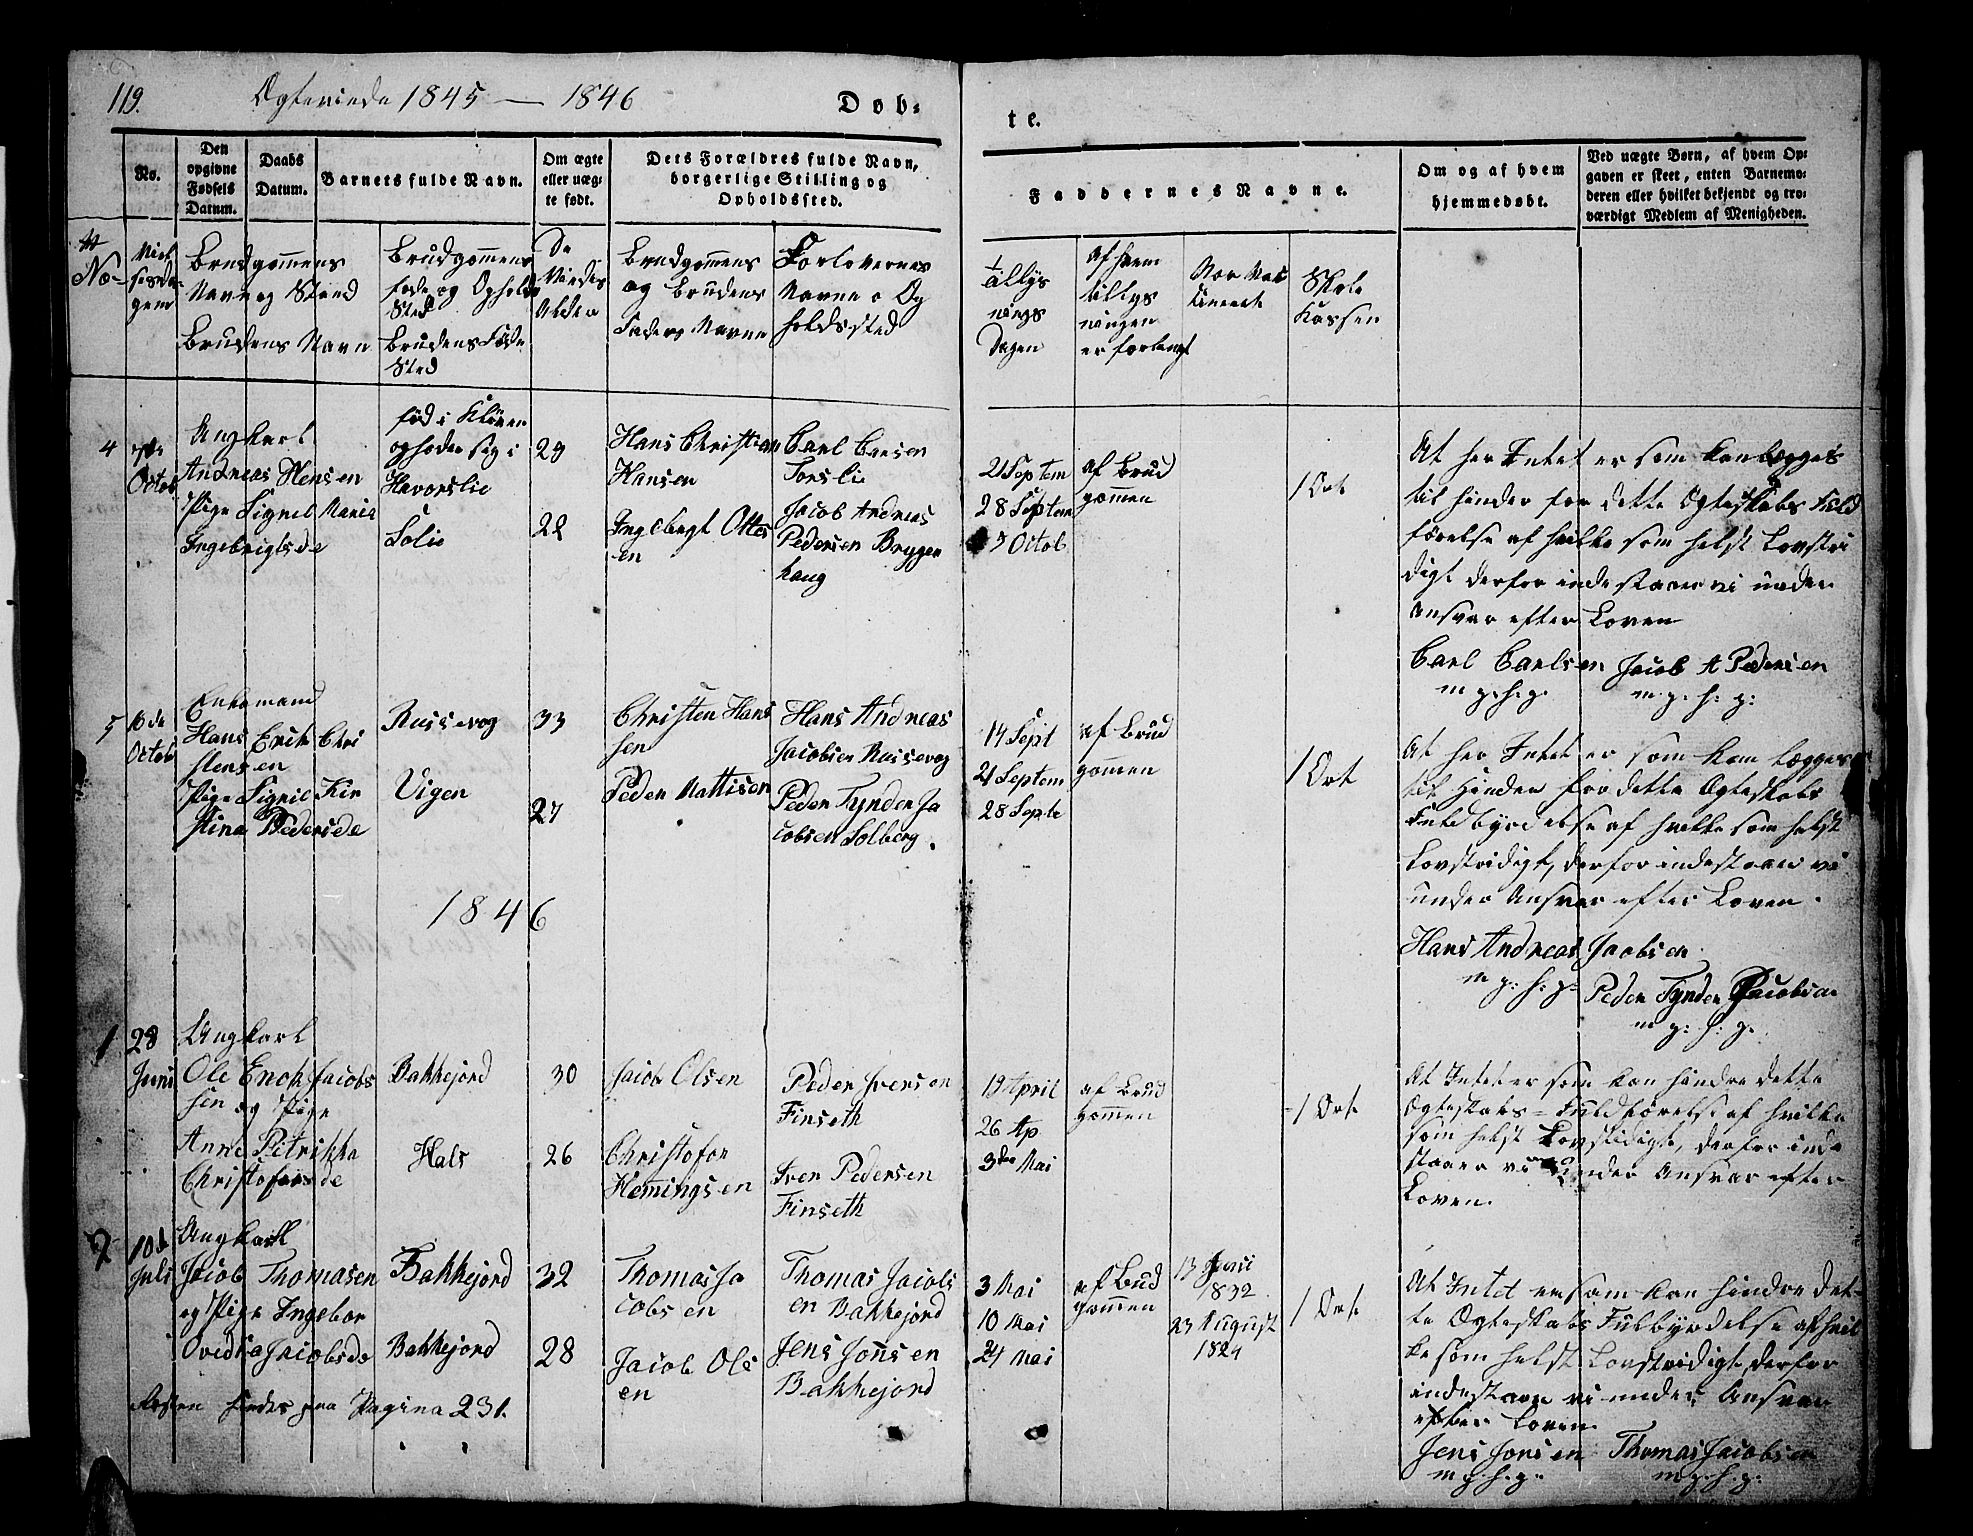 119. Ogteviede 1845 — 1846
Døb=
te.
No.
Den
opgivne
Fødsels
Datum.
Daabs
Datum.
Barnets fulde Navn.
Om ægte
eller uæg=
te født.
Dets Forældres fulde Navn,
borgerlige Stilling og
Opholdssted.
Faddernes Navne.
Om og af hvem
hjemmedøbt.
Ved uægte Børn, af hvem Op=
gaven er skeet, enten Barnemo=
deren eller hvilket bekjendt og tro=
værdigt Medlem af Menigheden.
No
Brudgommens
Navn og Stand
Brudens Navn
Brudgommens
føde og Opholds
Sted
Brudens Føde
Sted
De
Viedes
Alder
Brudgommens
og Brudens
Faders Navne
Forlovernes
Navne o Op
holdssted
Tillys
nings
Dagen
Af hvem
tillys
ningen
er forlangt
Skole
Kassen
4
Octob
Ungkarl
Andreas Hensen
Pige Signel Maria
Ingebrigtsde
fød i Kløven
opholder sig i
Havorslie
Solie
29
22
Hans Christian
Hansen
Ingebregt Ottes
en
Carl Carsen
Torslie
Jacob Andreas
Pedersen Bryggen
haug
21 Septem
28 Septem
5 Octob
af Brud
gommen
1 Ort
At her Intet er som kan lægges
til hinder for dette Ogteskabs Fuld
førelse af hvilke som helst Lovstri
digt derfor indestaaer vi under
Ansvar efter Loven
Carl Carlsen Jacob A Pedersen
m. p. h. p. m. p. h. p.
5
10de
Octob
Enkemand
Hans Erik Chri
stensen
Pige Sigril Kir
stina Pedersde
Russevog
Vigen
33
27
Christen Hans
sen
Peder Mattisen
Hans Andreas
Jacobsen Russevog
Peder Tynder Ja
cobsen Solberg.
14 Sept
21 Septem
28 Septe
af Brud
gommen
1 Ort
At her Intet er som kan lægges
til Hinder for dette Ogteskabs
Fuldbyrdelse af hvilke som helst
Lovstridigt, derfor indestaaer vi
under Ansvar efter Loven.
Hans Andreas Jacobsen
m. p: h: p:
Peder Tynder Jacobsen
m p: h: p.
1846
1
28
Juni
Ungkarl
Ole Enok Jacobs
sen og Pige
Anne Pitrikka
Christofersde
Bakkejord
Hals
30
26
Jacob Olsen
Christofor
Hemingsen
Peder Iversen
Finseth
Iver Pedersen
Finseth
19 April
26 Ap
3die Mai
af Brud
gommen
1 Ort
At Intet er som kan hindre dette
Ogteskabs= Fuldførelse af hvilke
som helst Lovstidigt, derfor inde
staaer vi under Ansvar efter
Loven.
2
10de
Juli
Ungkarl
Jacob Thomasen
og Pige Ingebor
Ovidia Jacobsde
Bakkejord
Bakkejord
32
28
Thomas Ja
cobsen
Jacob Ols
en
Thomas Jacobs
en Bakkejord
Jens Jonsen
Bakkejord
3 Mai
10 Mai
24 Mai
af Brud
gommen
13 Juni
1832
23 August
1824
1 Ort
At Intet er som kan hindre det-
te Ogteskabs Fulbyrdelse af hvil
ke som helst Lovstridigt, derfor
indestaaer vi under Ansvar
efter Loven
Jens Jonsen Thomas Jacobsen
m. p. h. p. m. p. h. p.
Resten findes paa Pagina 231.